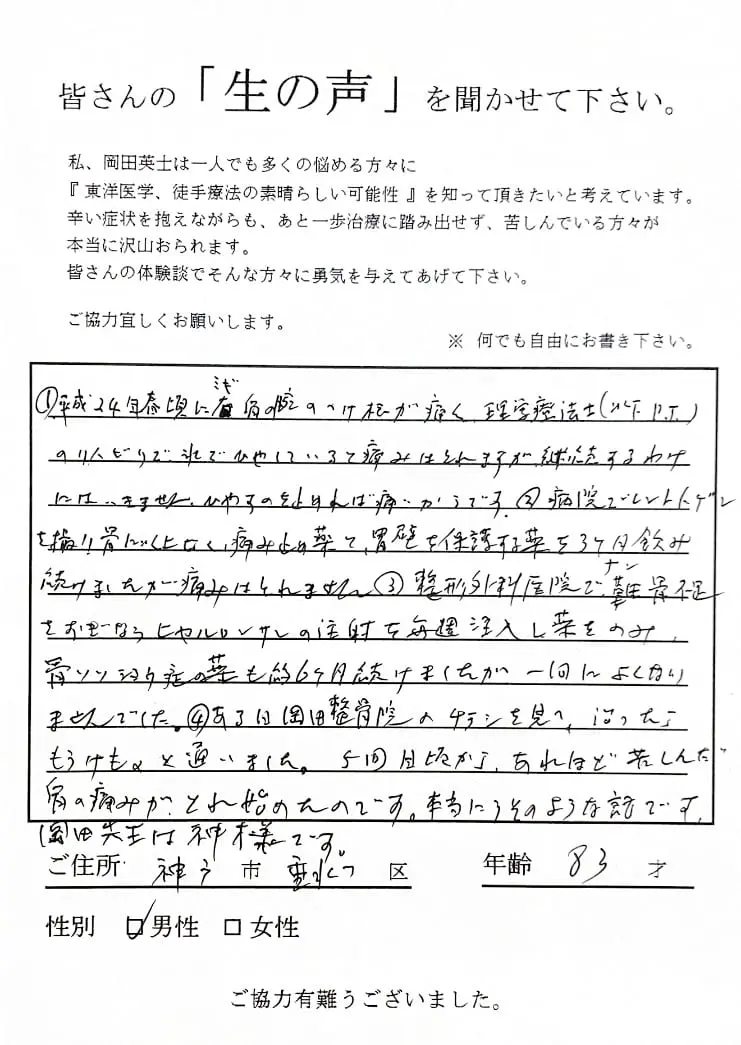 皆さんの「生の声」を聞かせて下さい。
私、岡田英士は一人でも多くの悩める方々に
『 東洋医学、徒手療法の素晴らしい可能性 』を知って頂きたいと考えています。
辛い症状を抱えながらも、あと一歩治療に踏み出せず、苦しんでいる方々が
本当に沢山おられます。
皆さんの体験談でそんな方々に勇気を与えてあげて下さい。
ご協力宜しくお願いします。
※ 何でも自由にお書き下さい。
ミギ
①平成24年春頃に右肩の腕のつけ根が痛く、理学療法士(以下、P.T.)
で ひやしていると痛みはとれますが、継続するわけ
にはいきません、ひやすのを止めれば痛いからです。②病院でレントゲン
を撮り骨に 、痛み止め薬で、胃壁を保護する薬を3ヶ月飲み
ナン
続けましたが痛みはとれません ③整形外科医院で、難骨不足
を ヒヤルロンサンの注射を毎週注入し薬をのみ、
骨ソソショウ症の薬も約6ヶ月続けましたが 一向によくなり
ませんでした。④ある日岡田整骨院のチラシを見て、治ったら
もうけもんと通いました。5回目頃から、あれほど苦しんだ
肩の痛みが、とれ始めたのです。本当にうそのような話です。
岡田先生は神様です。
ご住所 神戸 市 垂水 区 年齢 83 才
性別 ☑男性 □女性
ご協力有難うございました。